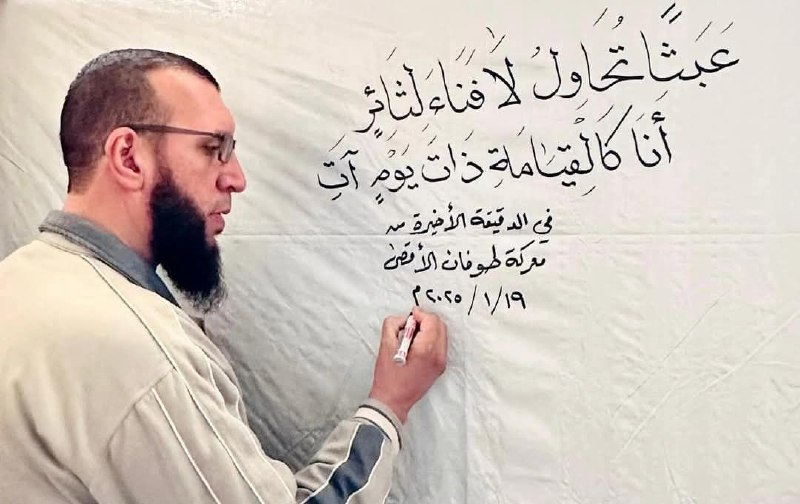 عَبَثًا تُحَاوِلُ لَا فَنَاءَ لِثَائِرٍ
أَنَا كَالْقِيَامَةِ ذَاتَ يَوْمٍ آتِ
في الدقيقة الأخيرة من
معركة طوفان الأقصى
١٩/ ١ / ٢٠٢٥ م